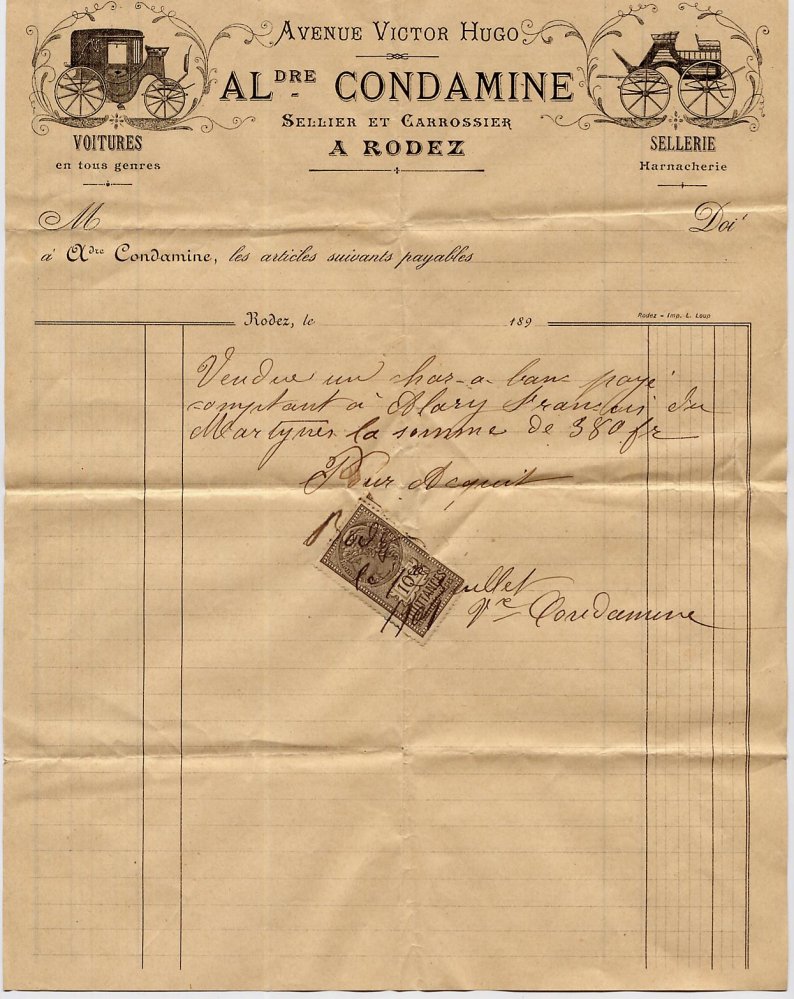 Avenue Victor Hugo
ALDRE CONDAMINE
Sellier et Carrossier
A RODEZ
VOITURES
en tous genres
SELLERIE
Harnacherie
M Doit
à Adre Condamine, les articles suivants payables
Rodez, le 189
Rodez - Imp. L. Loup
Vendue un char-a-banc payé
comptant à Alary Francois du
Martynes la somme de 380 fr
Pour Acquit
Rodez
le
10c
QUITTANCES
juillet
Vve Condamine